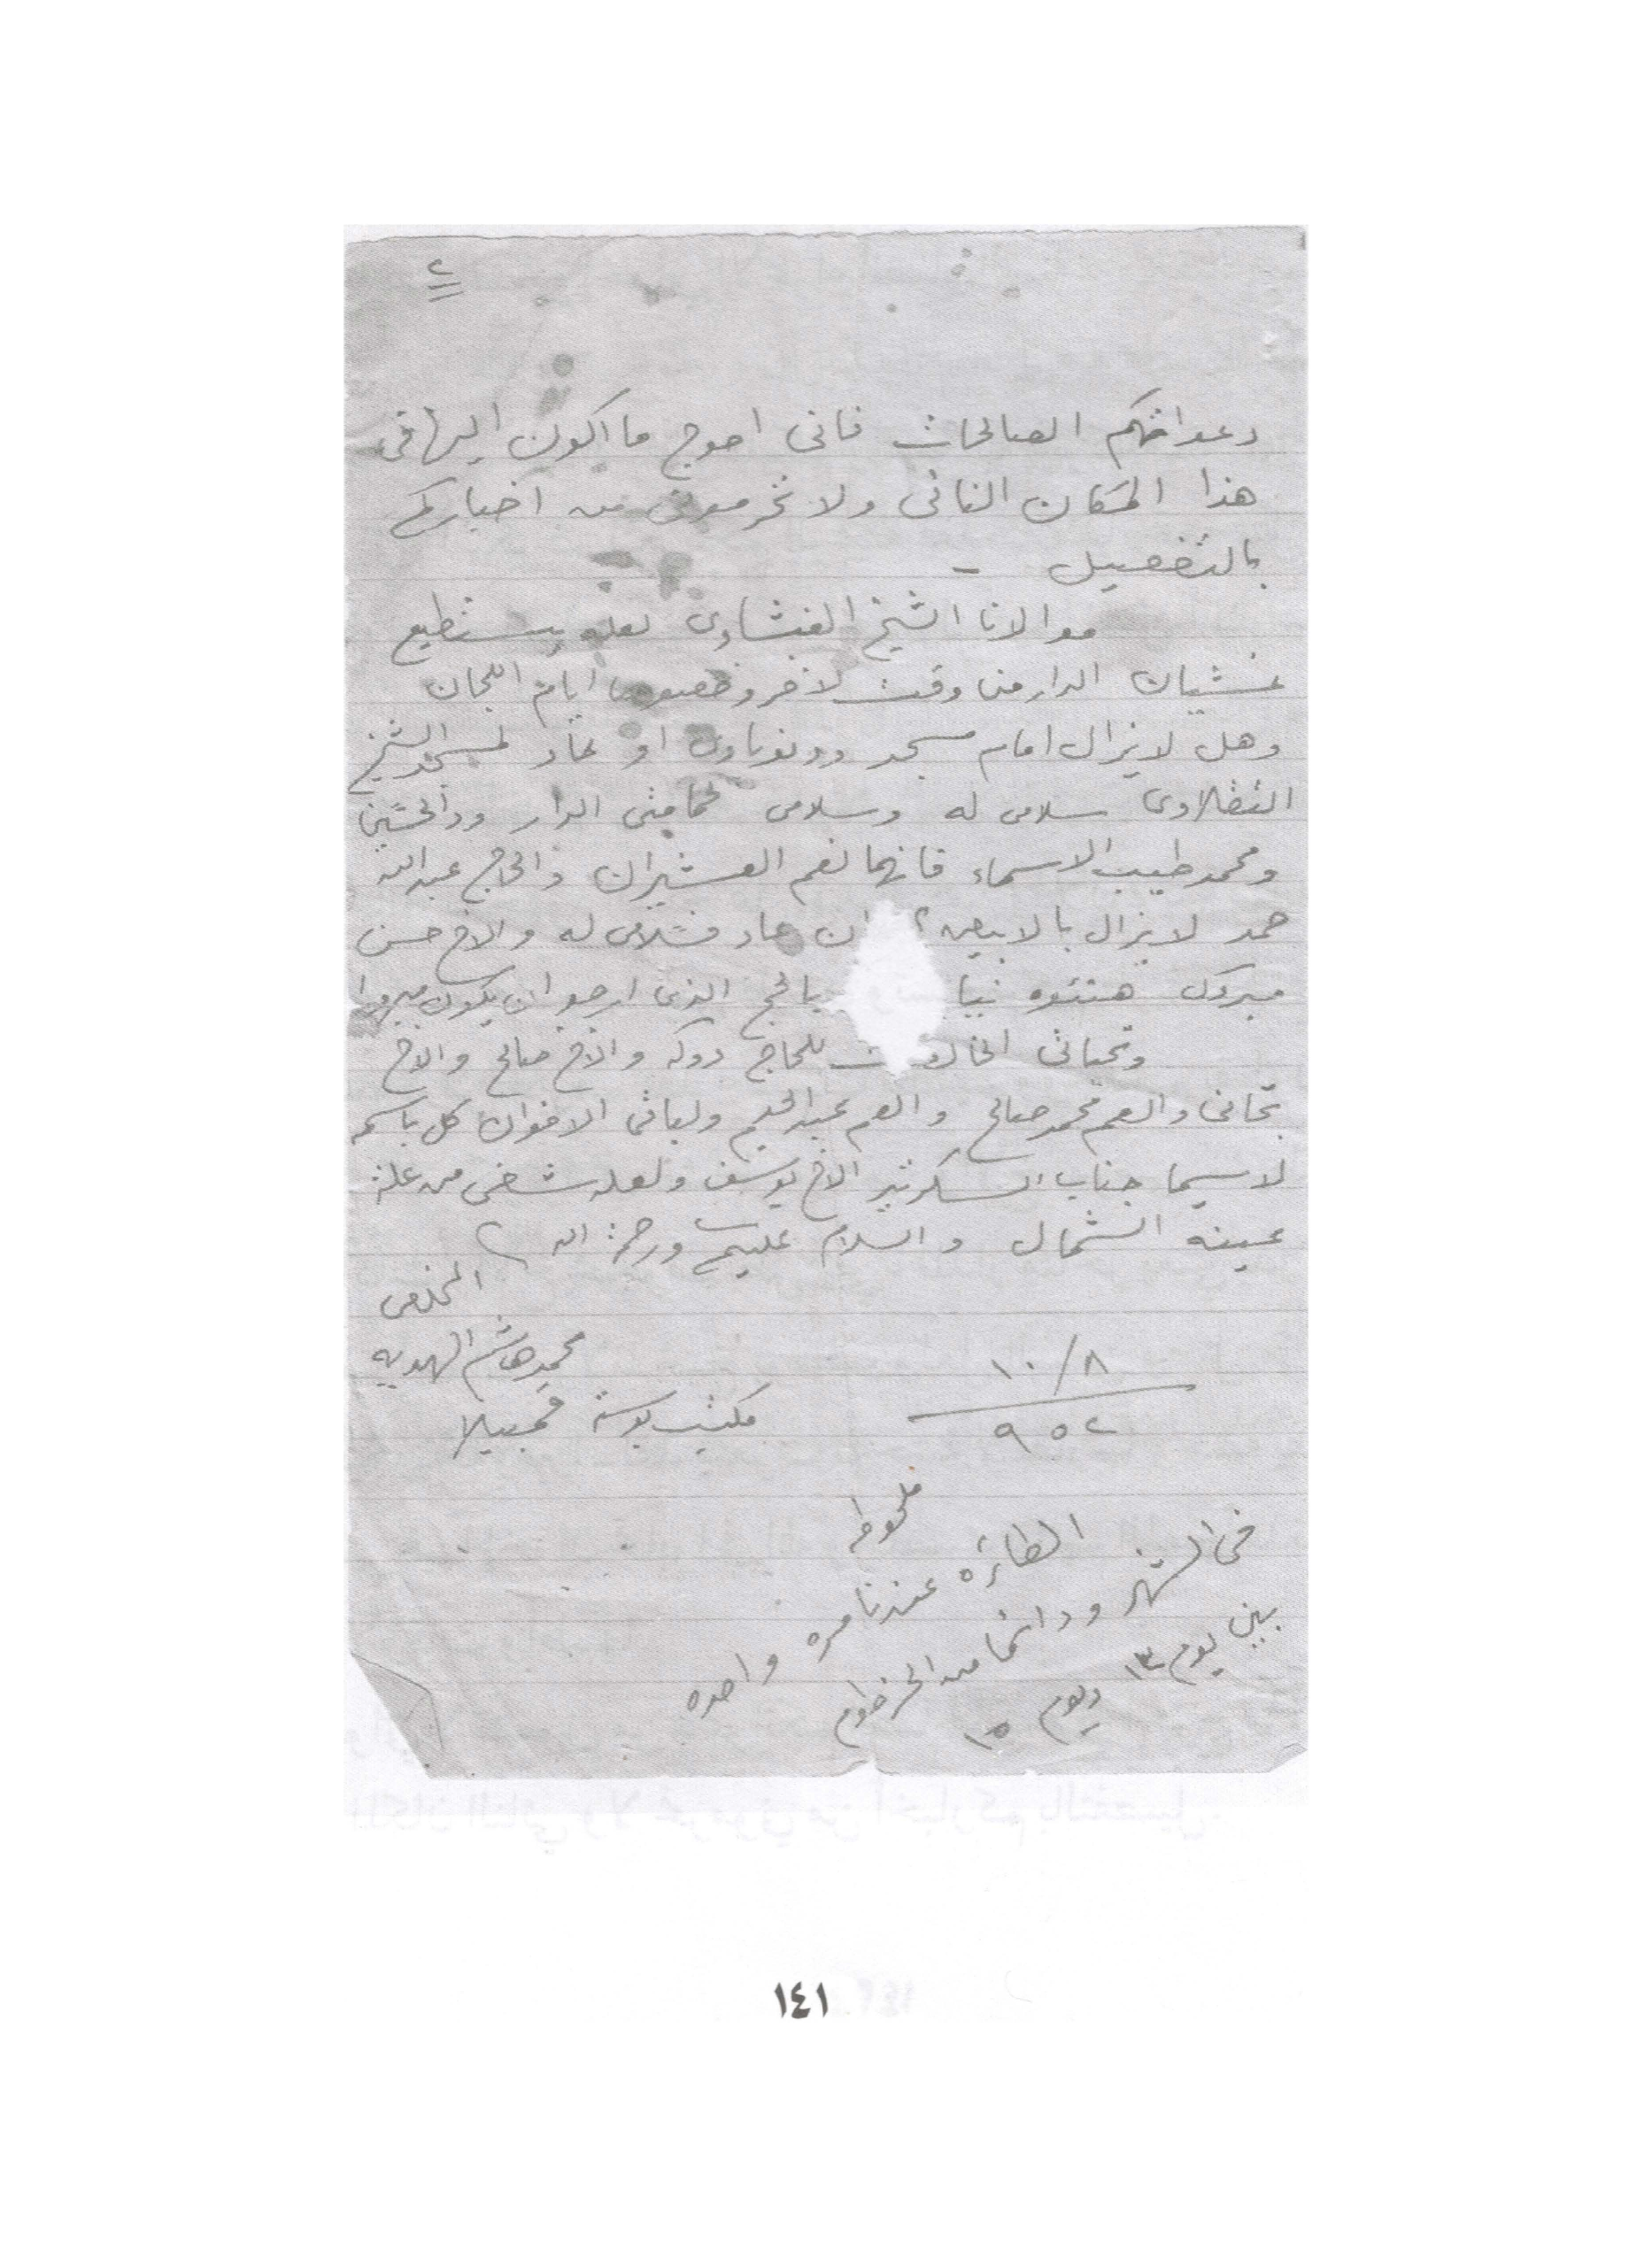 ٢
دعواتكم الصالحات فانى احوج ما اكون اليها فى
هذا المكان النائى ولا تحرمونى من اخباركم
بالتفصيل -
مولانا الشيخ الفشاوى لعله يستطيع
غشيان الدار من وقت لآخر وخصوصا ايام اللجان
وهل لا يزال امام مسجد ودنوباوى او عاد لمسجد الشيخ
التقلاوى سلامى له وسلامى لحمامتى الدار ود الحسين
ومحمد طيب الاسماء فانهما نعم العشيران والحاج عبدالله
حمد لا يزال بالابيض؟ ان عاد فسلامى له والاخ حسن
مبروك هنئوه بالحج الذى ارجو ان يكون مبرورا
وتحياتى للحاج دوكه والاخ صالح والاخ
تجانى والعم محمد صالح والعم عبدالحليم ولباقى الاخوان كل باسمه
لاسيما جناب السكرتير الاخ يوسف ولعله شفى من علة
عينه الشمال والسلام عليكم ورحمة الله
المخلص
محمد هاشم الهديه
مكتب بوستة قمبيلا
١٠/٨
٩٥٢
ملحوظه
الطائره عندنا مره واحده
فى الشهر ودائما من الخرطوم
بين يوم ١٣ ويوم ١٥
١٤١